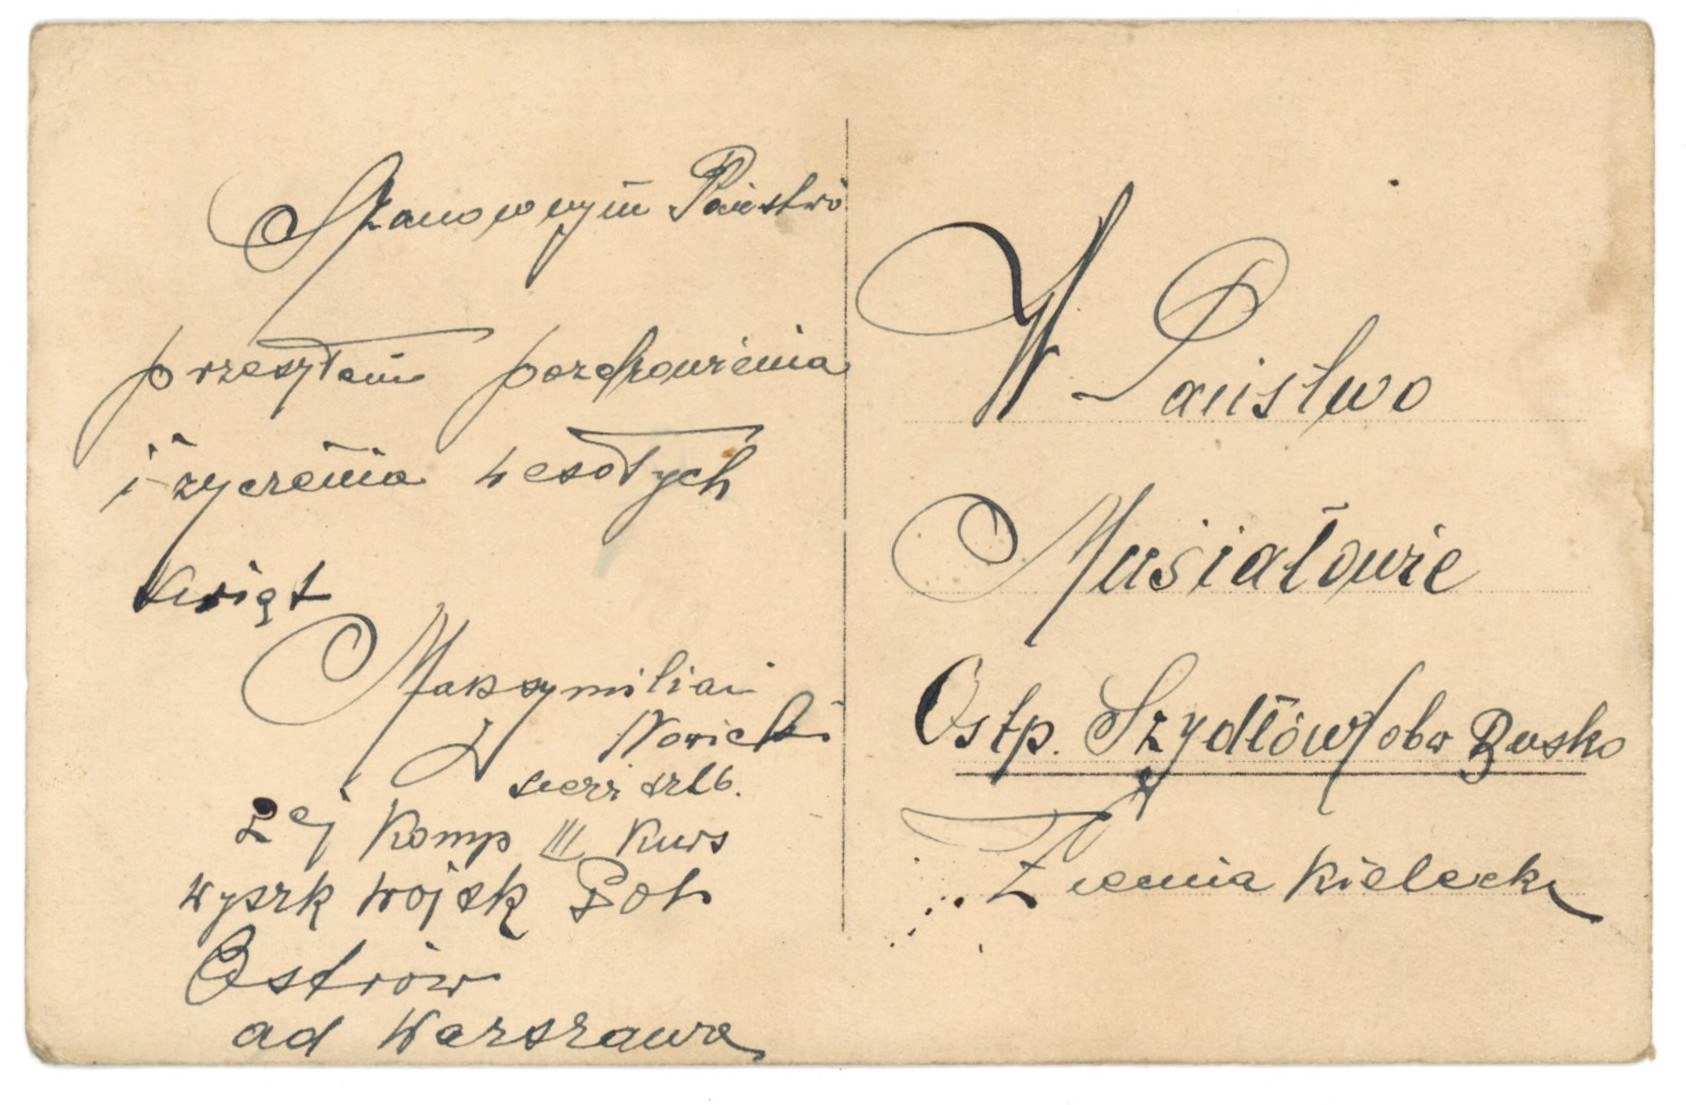 Szanownym Państwu
przesyłam pozdrowienia
i życzenia wesołych
świąt
Maksymilian
Nowicki
sierż szt6.
2ej Komp III Kurs
wyszk wojsk Pol
Ostrów
ad Warszawa
W Państwo
Musiałowie
Ostp. Szydłów/obw Busko
Ziemia Kielecka